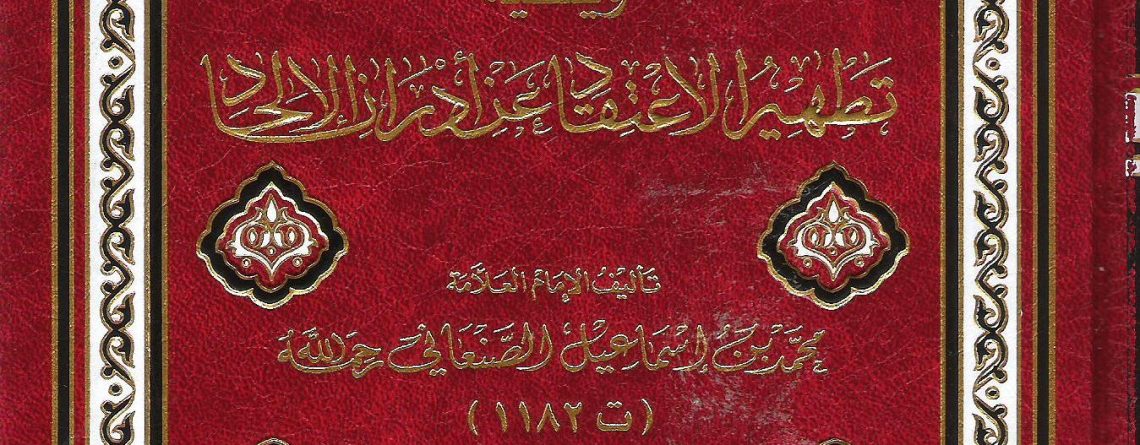 تَطْهِيرُ الاعْتِقَادِ عَنْ أَدْرَانِ الإِلْحَادِ
تَأْلِيفُ الإِمَامِ العَلَّامَة
مُحَمَّد بْنِ إِسْمَاعِيلَ الصَّنْعَانِيّ رَحِمَهُ اللَّهُ
(ت ١١٨٢)